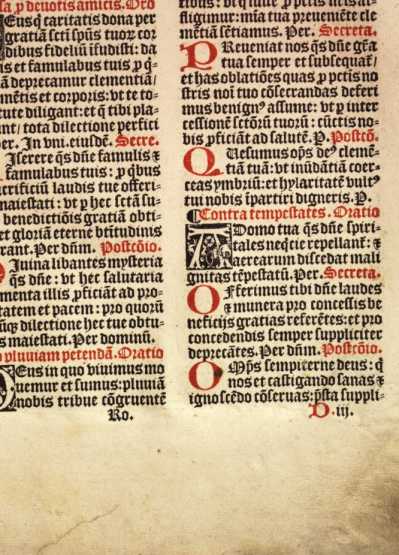 sa, ꝑ deuotis amicis. Oro
Eus q̇ caritatis dona per
gratiã scti spũs tuoꝝ cor
dibus fideliũ ifudisti: da
is et famulabus tuis ꝓ q̇-
ã deprecamur clementiã/
mẽtis et corporis: vt te to-
tute diligant: et q̃ tibi pla-
nt/ tota dilectione perfici
er. In vni. eiusdẽ. Secre.
Iserere q̃s dñe famulis ⁊
famulabus tuis: ꝓ q̇bus
crificiũ laudis tue offeri-
maiestati: vt ꝑ hec sctã su-
benedictiõis gratiã obti-
et gloriã eterne btitudinis
rant. Per dñm. Postcõio.
Iuina libantes mysteria
q̃s dñe: vt hec salutaria
menta illis ꝓficiãt ad pro-
tatem et pacem: pro quorũ
uoꝝ dilectione hec tue obtu-
s maiestati. Per dominũ.
d pluuiam petendã. Oratio
Eus in quo viuimus mo
uemur et sumus: pluuiã
nobis tribue cõgruentẽ
Ro.
stigimur: mĩa tua preuenire cle
mẽtiã sẽtiamus. Per. Secreta.
PReueniat nos q̃s dñe grã
tua semper et subsequaẗ/
et has oblatiões quas ꝓ pctis no
stris noĩ tuo cõsecrandas deferi
mus benignꝰ assume: vt ꝑ inter
cessionẽ sctõrũ tuorũ: cunctis no-
bis ꝓficiãt ad salutẽ. P. Postcõ.
QUesumus oṗs deꝰ clemẽ-
tiã tuã: vt inũdãtiã coer-
ceas ymbriũ: et hylaritatẽ vultꝰ
tui nobis ĩpartiri digneris. P.
¶Contra tempestates. Oratio
ADomo tua q̃s dñe spiri-
tales neq̇tie repellant̃: ⁊
aerearum discedat mali
gnitas tẽpestatũ. Per. Secreta.
OFferimus tibi dñe laudes
⁊ munera pro concessis be
neficijs gratias referẽtes: et pro
concedendis semper suppliciter
deprecãtes. Per dñm. Postcõio.
OMp̃s sempiterne deus: q̇
nos et castigando sanas ⁊
ignoscẽdo cõseruas: p̃sta suppli-
D. iij.